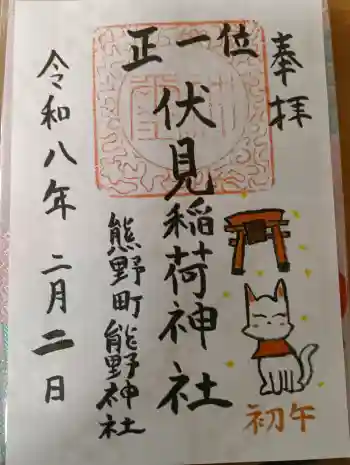 奉拝
正一位
伏見稲荷神社
初午
熊野町熊野神社
令和八年 二月二日